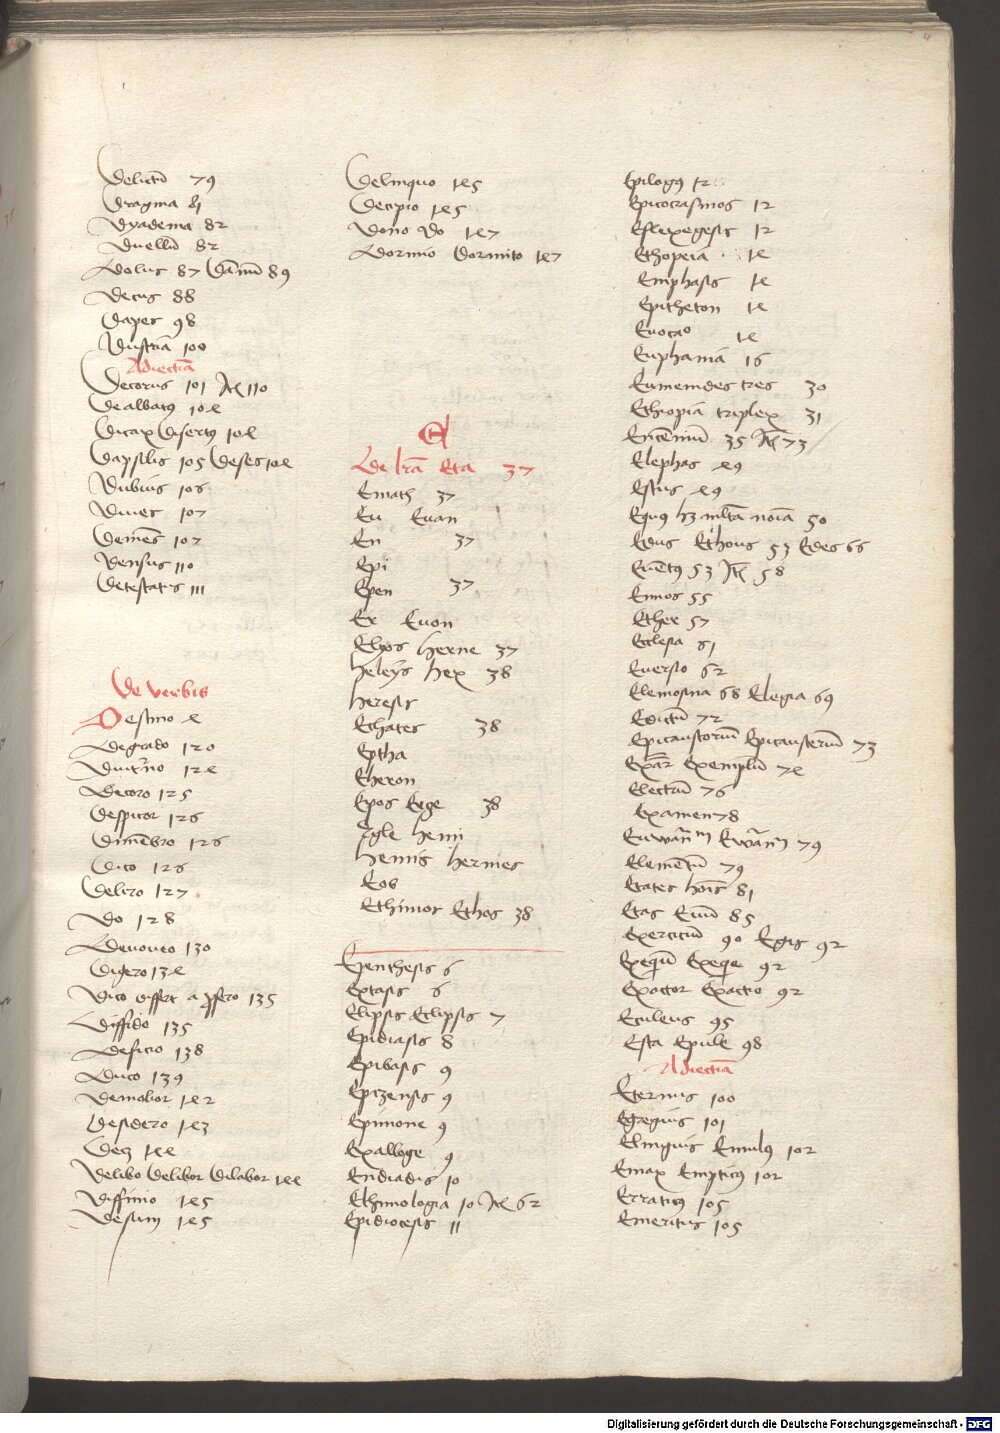 4
Delictū 79
Dragma 81
Dyadema 82
Duellū 82
Dolus 87 Dānū 89
Decus 88
Dapes 98
Dustriā 100
Adiectiā
Decorus 101 Itē 110
Dealbatꝰ 104
Dicax Disertꝰ 104
Dapsilis 105 Deses 104
Dubius 106
Diues 107
Demēs 107
Densus 110
Detestatus 111
De verbis
Destino 4
Degrado 120
Diut̄no 124
Decoro 125
Despicor 126
Dimēbro 126
Dico 126
Deliro 127
Do 128
Deuoueo 130
Digero 134
Dico differt a ꝓfero 135
Diffido 135
Deficio 138
Duco 139
Demolior 142
Desidero 143
Dez 144
Delibo Delibor Dilabor 144
Diffinio 145
Desum 145
Delinquo 145
Decipio 145
Dono Do 147
Dormio Dormito 147
E
De lrā Eta 37
Emath 37
Eu Euan
En 37
Epi
Epen 37
Er Euon
Elyos herne 37
heleys hex 38
heresis
Echates 38
Eptha
Eheron
Epos Ege 38
Egle hemi
hemis hermes
Eob
Ethimos Ethos 38
Epenthesis 6
Extasis 6
Elipsis Eclipsis 7
Epidiasis 8
Epibasis 9
Epizensis 9
Epimone 9
Exalloge 9
Endiadis 10
Ethimologia 10 Itē 62
Epidiocesis 11
Epilogꝰ 12
Epicocrasmos 12
Eflexegesis 12
Ethopeia 14
Emphasis 14
Epitheton 14
Euocao 14
Euphamiā 16
Eumenides tres 30
Ethiopia triplex 31
Encēniū 35 Itē 73
Elephas 49
Estus 49
Equꝰ hꝫ mltā noiā 50
Edus Ethous 53 Edes 66
Euētꝰ 53 Itē 58
Ennos 55
Ether 57
Ecclesia 61
Euersio 62
Elemosina 68 Elegia 69
Edictū 72
Epicaustoriū Epicausteriū 73
Exār Exemplū 74
Electrū 76
Examen 78
79
Elementū 79
Etates hoīs 81
Etas Euū 85
Exercitiū 90 Egis 92
Exequū Exeqe 92
Exactor Exactio 92
Eculeus 95
Esta Epule 98
Adiectiā
Eternus 100
Egregius 101
Elinguis Emulꝰ 102
Emax Empticꝰ 102
Erraticꝰ 105
Emeritus 105
Digitalisierung gefördert durch die Deutsche Forschungsgemeinschaft - DFG